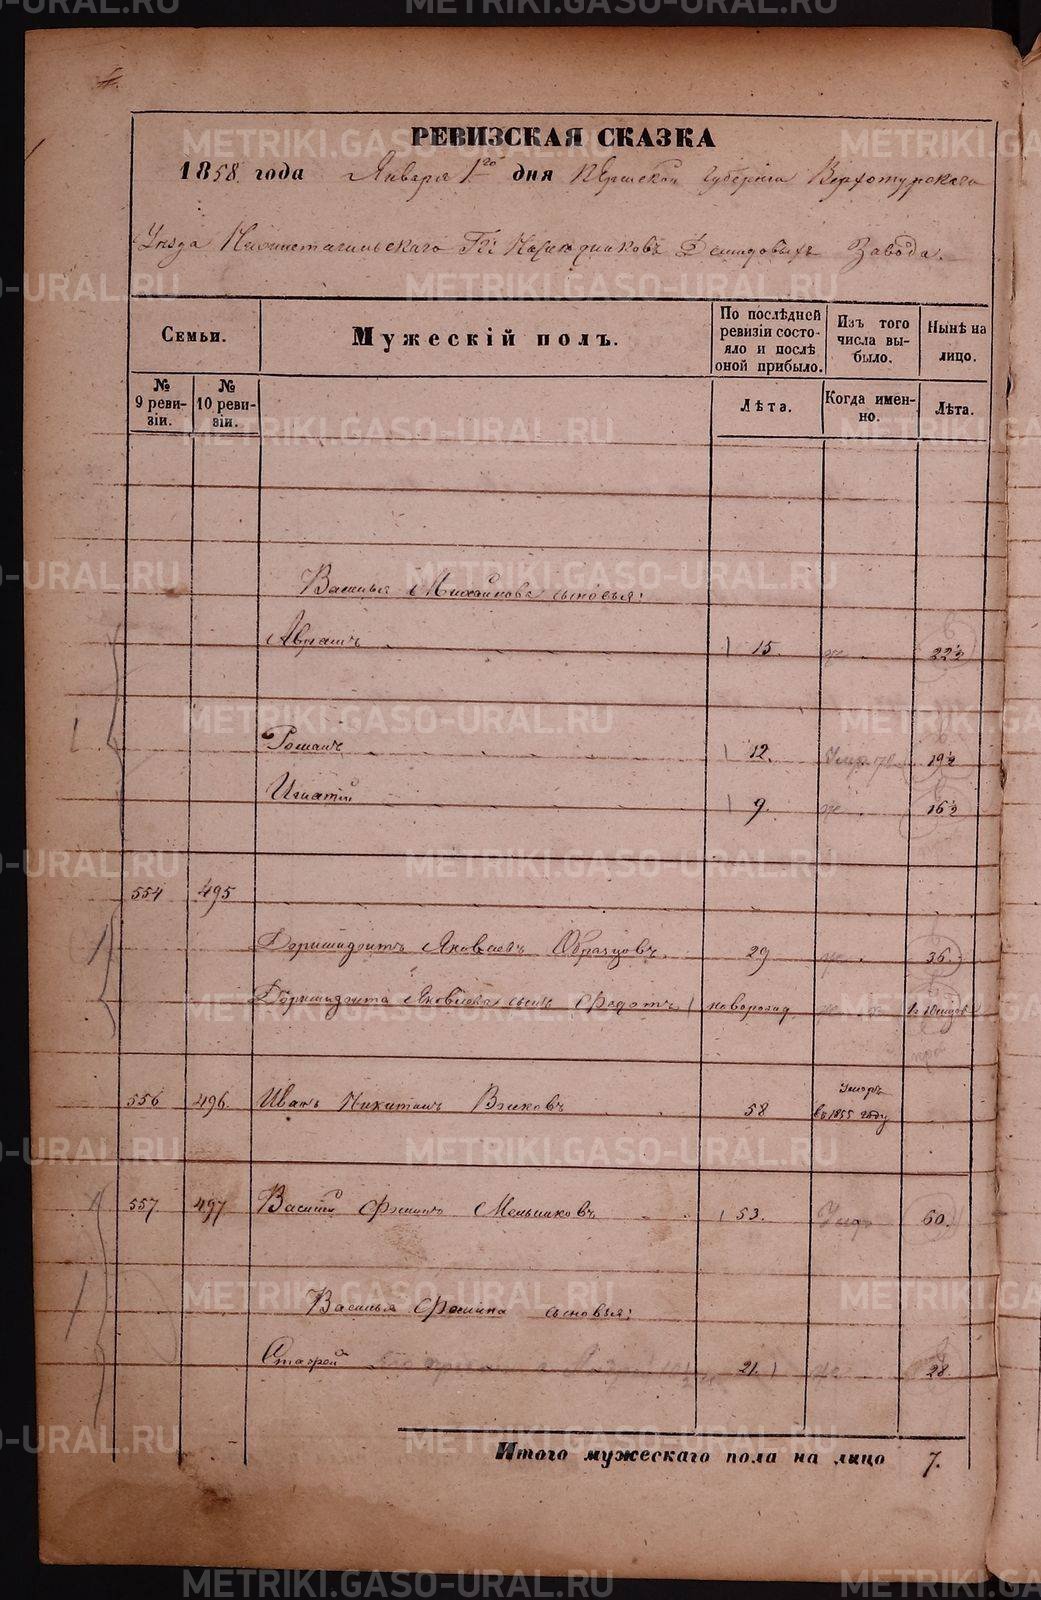 РЕВИЗСКАЯ СКАЗКА
1858 года Января 1го дня Пермской Губернiи Верхотурскаго
Уѣзда Нижнетагильскаго Гг. Наслѣдниковъ Демидовыхъ Завода.
Семьи.
Мужескiй полъ.
По послѣдней ревизiи состояло и послѣ оной прибыло.
Изъ того числа выбыло.
Нынѣ на лицо.
№ 9 ревизiи.
№ 10 ревизiи.
Лѣта.
Когда именно.
Лѣта.
Василья Михайлова сыновья:
Аврамъ 15. 22½
Романъ 12. 19½
Игнатiй 9. 16½
554 495
Яковлевъ Образцовъ 29 36.
Яковлева сынъ Федотъ новорожд.
556 496. Иванъ Никитинъ 58 Умеръ въ 1855 году
557. 497 Василiй Фоминъ Мельниковъ 53. 60.
Василья Фомина сыновья:
21. 28.
Итого мужескаго пола на лицо 7.
METRIKI.GASO-URAL.RU